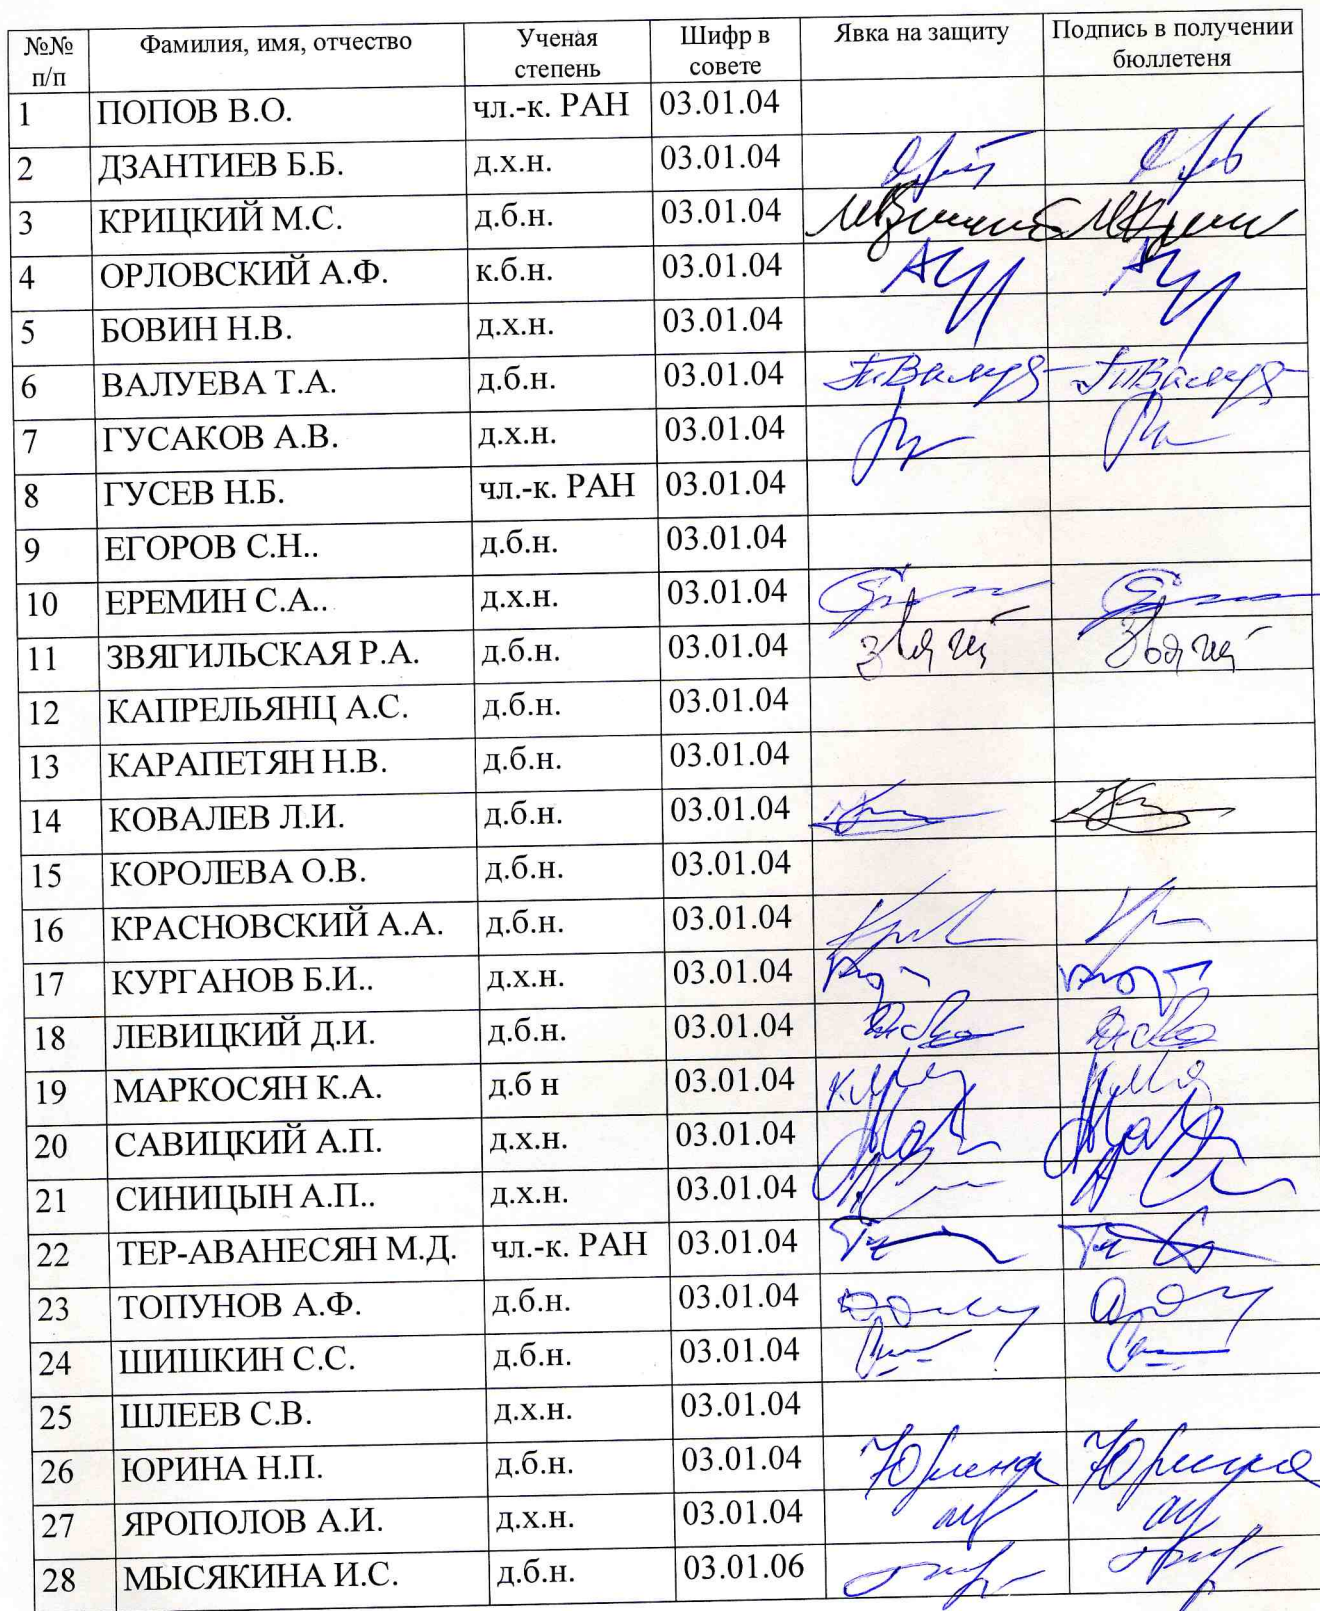 №№ п/п Фамилия, имя, отчество Ученая степень Шифр в совете Явка на защиту Подпись в получении бюллетеня
1 ПОПОВ В.О. чл.-к. РАН 03.01.04
2 ДЗАНТИЕВ Б.Б. д.х.н. 03.01.04
3 КРИЦКИЙ М.С. д.б.н. 03.01.04
4 ОРЛОВСКИЙ А.Ф. к.б.н. 03.01.04
5 БОВИН Н.В. д.х.н. 03.01.04
6 ВАЛУЕВА Т.А. д.б.н. 03.01.04
7 ГУСАКОВ А.В. д.х.н. 03.01.04
8 ГУСЕВ Н.Б. чл.-к. РАН 03.01.04
9 ЕГОРОВ С.Н.. д.б.н. 03.01.04
10 ЕРЕМИН С.А.. д.х.н. 03.01.04
11 ЗВЯГИЛЬСКАЯ Р.А. д.б.н. 03.01.04
12 КАПРЕЛЬЯНЦ А.С. д.б.н. 03.01.04
13 КАРАПЕТЯН Н.В. д.б.н. 03.01.04
14 КОВАЛЕВ Л.И. д.б.н. 03.01.04
15 КОРОЛЕВА О.В. д.б.н. 03.01.04
16 КРАСНОВСКИЙ А.А. д.б.н. 03.01.04
17 КУРГАНОВ Б.И.. д.х.н. 03.01.04
18 ЛЕВИЦКИЙ Д.И. д.б.н. 03.01.04
19 МАРКОСЯН К.А. д.б н 03.01.04
20 САВИЦКИЙ А.П. д.х.н. 03.01.04
21 СИНИЦЫН А.П.. д.х.н. 03.01.04
22 ТЕР-АВАНЕСЯН М.Д. чл.-к. РАН 03.01.04
23 ТОПУНОВ А.Ф. д.б.н. 03.01.04
24 ШИШКИН С.С. д.б.н. 03.01.04
25 ШЛЕЕВ С.В. д.х.н. 03.01.04
26 ЮРИНА Н.П. д.б.н. 03.01.04 Юрина Юрина
27 ЯРОПОЛОВ А.И. д.х.н. 03.01.04
28 МЫСЯКИНА И.С. д.б.н. 03.01.06